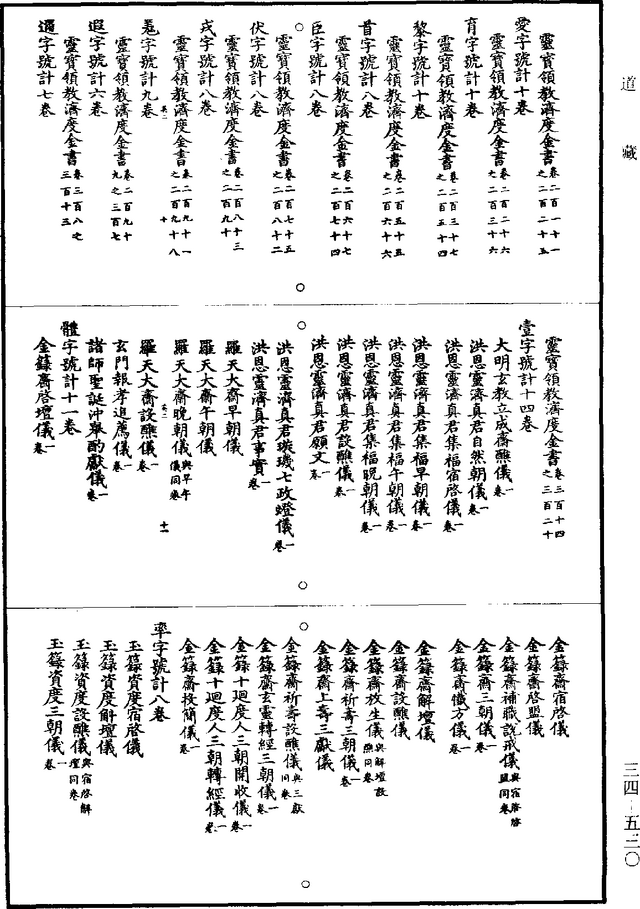 道藏
靈寶領教濟度金書卷二百一十一之二百二十五
愛字號計十卷
靈寶領教濟度金書卷二百二十六之二百三十六
育字號計十卷
靈寶領教濟度金書卷二百三十七之二百五十四
黎字號計十卷
靈寶領教濟度金書卷二百五十五之二百六十六
首字號計八卷
靈寶領教濟度金書卷二百六十七之二百七十四
臣字號計八卷
靈寶領教濟度金書卷二百七十五之二百八十二
伏字號計八卷
靈寶領教濟度金書卷二百八十三之二百九十
戎字號計八卷
靈寶領教濟度金書卷二百九十一之二百九十八
羌字號計九卷
靈寶領教濟度金書卷二百九十九之三百七
遐字號計六卷
靈寶領教濟度金書卷三百八之三百十三
邇字號計七卷
靈寶領教濟度金書卷三百十四之三百二十
壹字號計十四卷
大明玄教立成齋醮儀一卷
洪恩靈濟真君自然朝儀一卷
洪恩靈濟真君集福宿啓儀一卷
洪恩靈濟真君集福早朝儀一卷
洪恩靈濟真君集福午朝儀一卷
洪恩靈濟真君集福晚朝儀一卷
洪恩靈濟真君設醮儀一卷
洪恩靈濟真君願文一卷
洪恩靈濟真君璇璣七政燈儀一卷
洪恩靈濟真君事實一卷
羅天大齋早朝儀
羅天大齋午朝儀
羅天大齋晚朝儀與早午儀同卷
羅天大齋設醮儀一卷
玄門報孝追薦儀一卷
諸師聖誕沖舉酌獻儀一卷
體字號計十一卷
金籙齋啓壇儀一卷
金籙齋宿啓儀
金籙齋啓盟儀
金籙齋補職說戒儀與宿啓啓盟同卷
金籙齋三朝儀一卷
金籙齋懺方儀一卷
金籙齋解壇儀
金籙齋設醮儀
金籙齋放生儀與解壇設醮同卷
金籙齋祈壽三朝儀一卷
金籙齋上壽三獻儀
金籙齋祈壽設醮儀與三獻同卷
金籙齋玄靈轉經三朝儀一卷
金籙十廻度人三朝開收儀一卷
金籙十廻度人三朝轉經儀一卷
金籙齋投簡儀一卷
率字號計八卷
玉籙資度宿啓儀
玉籙資度解壇儀
玉籙資度設醮儀與宿啓解壇同卷
玉籙資度三朝儀一卷
三四-五三〇